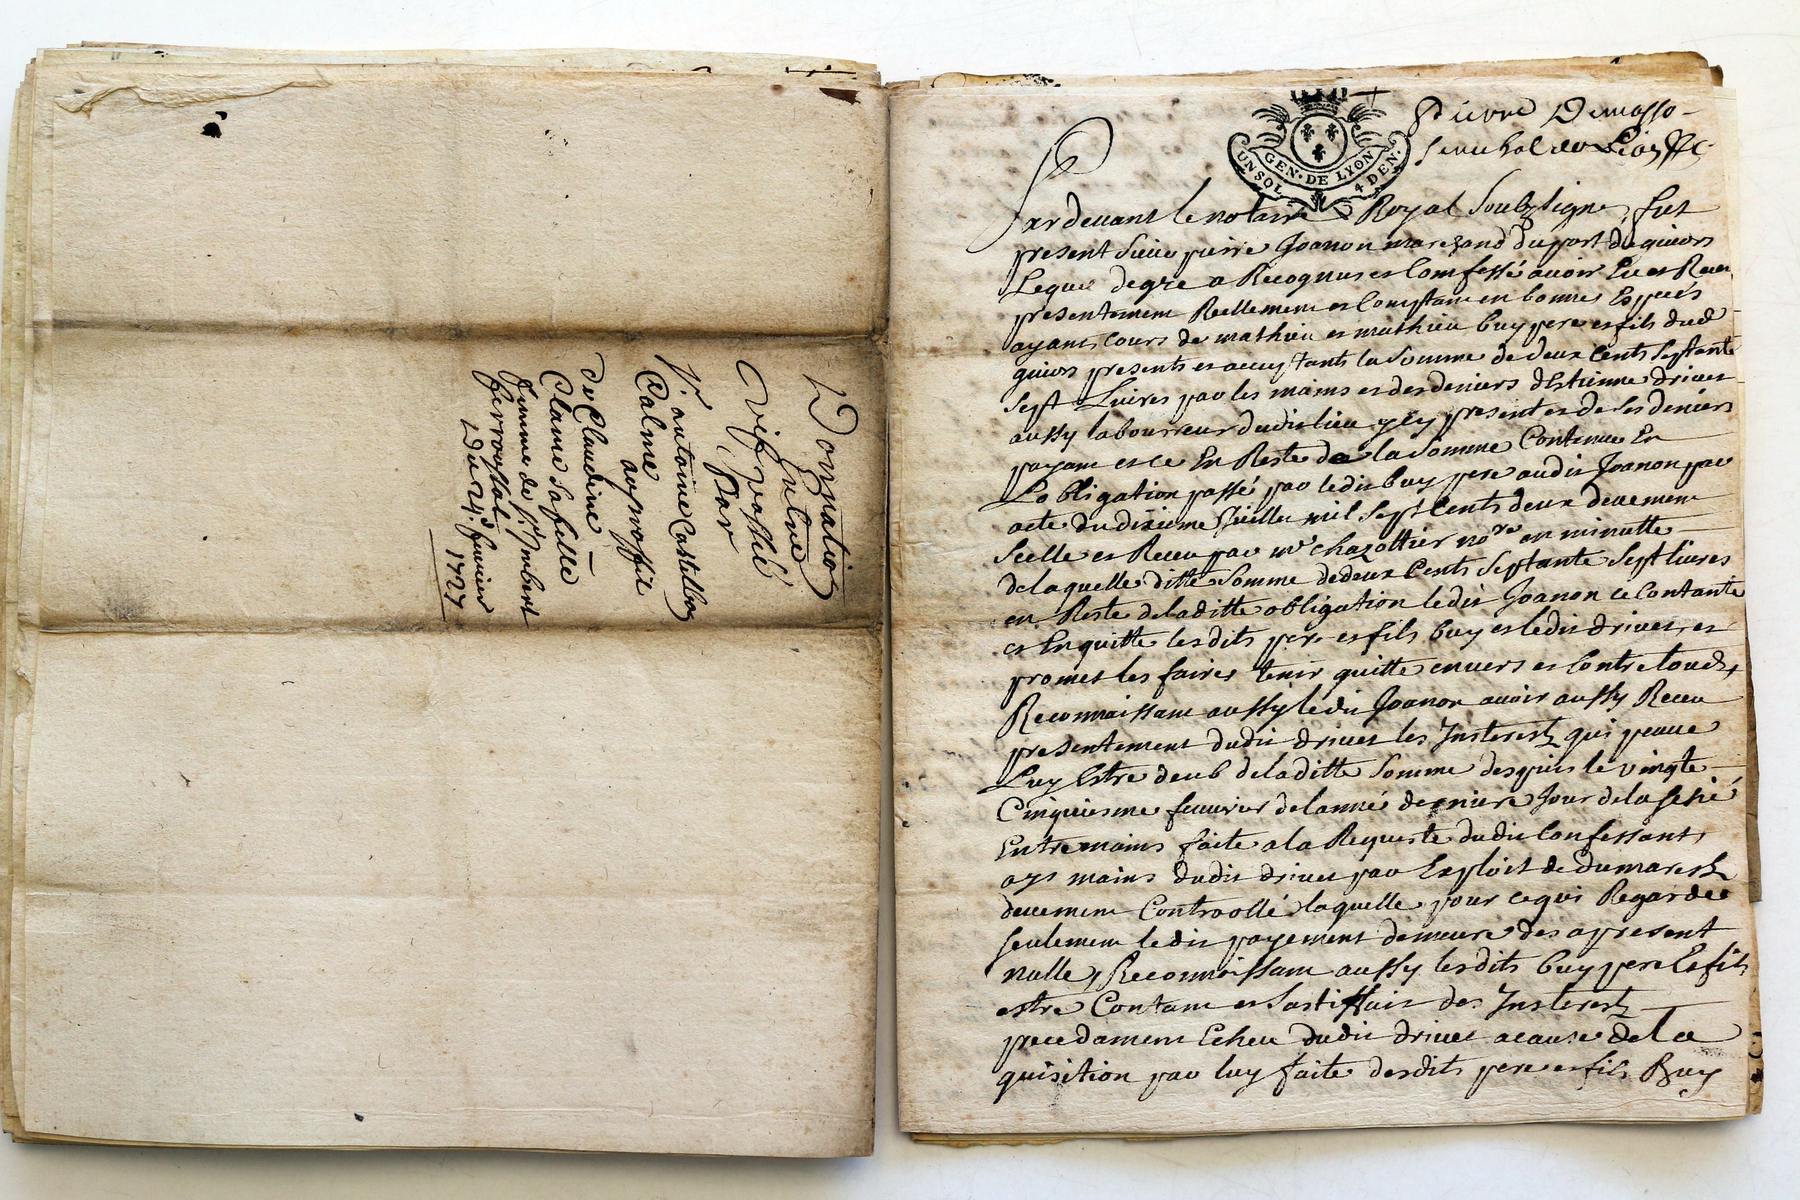 Donnation
Entre
Vifs passé
par
Sr. antoine Castelbon
Calme
au proffit
de Claudine
Clauue sa fille
femme de Sr. Imbert
Du 24e. feurier
1727
GEN. DE LYON
UN SOL 4 DEN.
Pierre Demasso
senechal de Lion &c
Pardeuant le notaire Royal Soubzsigne, fut
present Sieur pierre Joanon marchand du port de guiors
Lequel de gre a Recognu et Comfessé auoir Eu et Receu
presentement Reellement et Comptant en bonnes Especes
ayant cours de mathieu et mathieu buy pere et fils dud
guiors presents et acceptants la Somme de deux Cents Septante
Sept Liures par les mains et des deniers d'Estienne driuet
aussy labourreur dudit lieu icy present et de ses deniers
payant et ce En Reste de la Somme Contenue En
Lobligation passé par ledit buy pere audit Joanon par
acte du dixieme Juillet mil Sept Cents deux deuement
Scellé et Receu par me Chazottier nore en minutte
de laquelle ditte Somme de deux Cents Septante Sept liures
en Reste de laditte obligation ledit Joanon ce Contante
et En quitte lesdits pere et fils buy et ledit driuet, et
promet les faires tenir quitte enuers et Contre touds,
Reconnaissant aussy ledit Joanon auoir aussy Receu
presentement dudit driuet les Interestz qui peuue
Luy Estre deub de laditte Somme despuis le vingte
Cinquiesme feuurier de lanné derniere Jour de la sesie
Entre mains faite a la Requeste dudit Confessant,
ays mains dudit driuet par Exploit de dumarest
deuement Controollé laquelle pour ce qui Regardee
seulement ledit payement demeure des apresent
nulle, Reconnoissant aussy lesdits buy pere Et fils
estre Contant et Sastiffait des Interestz
precedament Echeu dudit driuet a cause de La
quisition par luy faite desdits pere et fils Buy